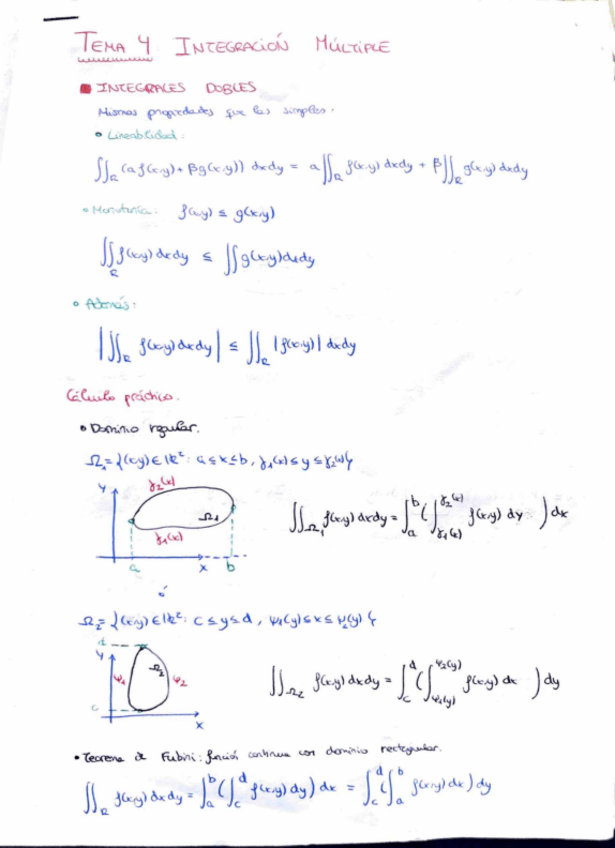 TEMA 4 INTEGRACIÓN MÚLTIPLE
INTEGRALES DOBLES
Mismas propiedades que las simples.
• Linealidad:
∬_R (α f(x,y) + βg(x,y)) dxdy = α∬_R f(x,y) dxdy + β∬_R g(x,y) dxdy
• Monotonía: f(x,y) ≤ g(x,y)
∬_R f(x,y) dxdy ≤ ∬ g(x,y) dxdy
• Además:
|∬_R f(x,y) dxdy| ≤ ∬_R |f(x,y)| dxdy
Cálculo práctico.
• Dominio regular.
Ω₁ = {(x,y) ∈ ℝ²: a ≤ x ≤ b, γ₁(x) ≤ y ≤ γ₂(x)}
y γ₂(x)
Ω₁
γ₁(x)
a x b
∬_Ω₁ f(x,y) dxdy = ∫_a^b (∫_γ₁(x)^γ₂(x) f(x,y) dy) dx
ó
Ω₂ = {(x,y) ∈ ℝ²: c ≤ y ≤ d, ψ₁(y) ≤ x ≤ ψ₂(y)}
d
y ψ₁ Ω₂ ψ₂
c
x
∬_Ω₂ f(x,y) dxdy = ∫_c^d (∫_ψ₁(y)^ψ₂(y) f(x,y) dx) dy
• Teorema de Fubini: función continua con dominio rectangular.
∬_R f(x,y) dxdy = ∫_a^b (∫_c^d f(x,y) dy) dx = ∫_c^d (∫_a^b f(x,y) dx) dy